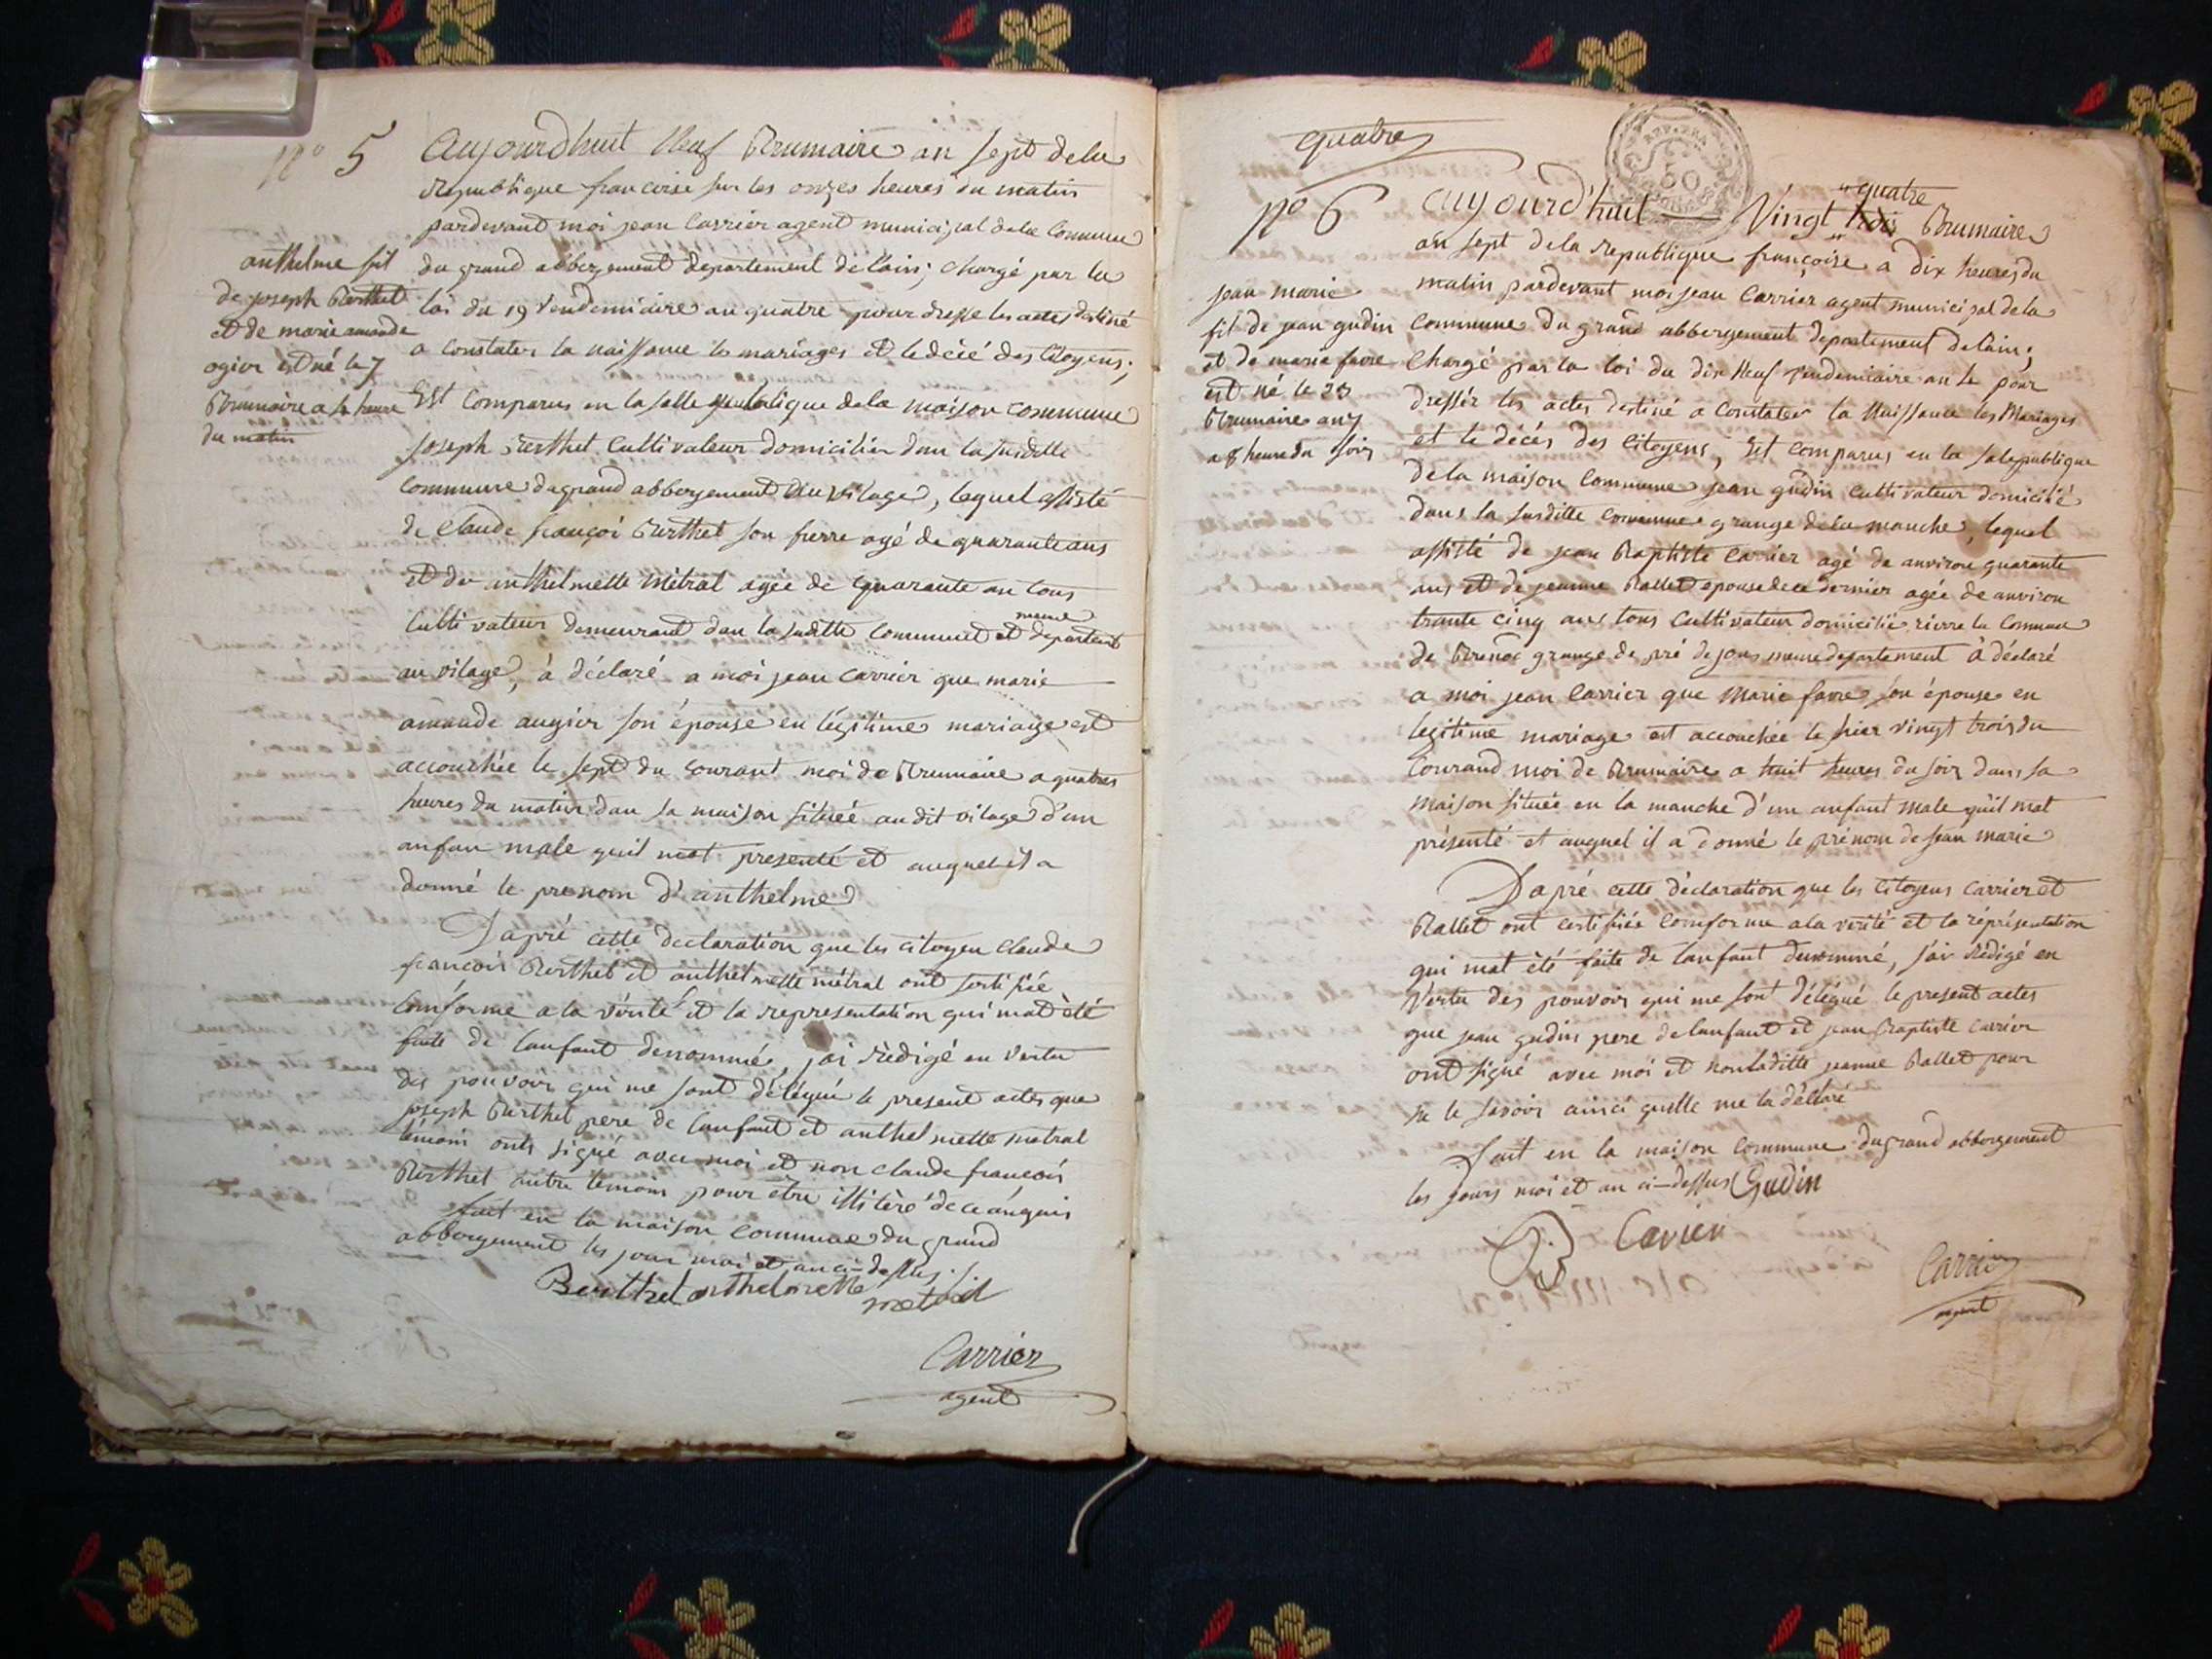 N° 5
aujourdhuit Neuf Brumaire an sept de la
republique francoise sur les onzes heures du matin
pardevant moi jean Carrier agent municipal dela Commune
du grand abbergement departement de lain; chargé par la
loi du 19 vendemiaire an quatre pour dresse les actes destiné
a constater la naissance les mariages et le décé des Citoyens;
Est comparus en la salle publique dela maison commune
joseph Berthet Cultivateur domicilier dan la susditte
commune du grand abbergement au vilage, lequel assisté
de Claude françoi Berthet son frerre agé de quarante ans
et de anthelmette Métral agée de quarante an tous
Cultivateur demeurant dan la suditte commune et meme departement
au vilage, à déclaré a moi jean Carrier que marie
amande augier son épouse en légitime mariage est
accouchée le sept du courant moi de Brumaire a quatres
heures du matin dan sa maison située au dit vilage d'un
anfan male quil mat presenté et auquel il a
donné le prenom d'anthelme
Dapré cette declaration que les citoyen Claude
françois Berthet et anthelmette métral ont sertifiée
Conforme a la vérité et la representation qui mat été
faite de lanfant denommé, jai rédigé en vertu
des pouvoir qui me sont délégué le present actes que
joseph Berthet pere de lanfant et anthelmette metral
témoin onts signé avec moi et non claude françois
Berthet autre temoins pour être illitèré de ce anquis
fait en la maison commune du grand
abbergement les jour moi et an ci-dessus ./.
Berthet anthelmette
metral
Carrier
agent
anthelme fil
de joseph Berthet
et de marie amande
ogier est né le 7
Brumaire a 4 heure
du matin
quatre
N° 6
aujourd'huit Vingt trois "quatre Brumaire
an sept dela republique françoise a dix heures du
matin pardevant moi jean Carrier agent municipal dela
commune du grand abbergement departement delain;
Chargé par la loi du dix Neuf vendemiaire an 4 pour
dressér les actes destiné a Constater la Naissance les Mariages
et le décés des Citoyens, Est comparus en la sale publique
dela maison Commune jean gudin cultivateur domicilié
dans la susditte commune grange dela manche, lequel
assisté de jean Baptiste Carrier agé de anviron quarante
ans et de jeanne Ballet epouse de ce dernier agée de anviron
trante cinq ans tous Cultivateur domicilié rierre la Commune
de Brenoc grange de pré de jous meme departement à déclaré
a moi jean Carrier que Marie favre son épouse en
legitime mariage est accouchée le hier vingt trois du
Courand moi de Brumaire a huit heures du soir dans sa
maison située en la manche d'un anfant male quil mat
présenté et auquel il a donné le prénom de jean marie
Dapré cette déclaration que les Citoyens Carrier et
Ballet ont certifiée comforme ala verité et la réprésentation
qui mat été faite de lanfant denommé, jai rédigé en
Vertu des pouvoir qui me sont délégué le present actes
que jean gudin pere de lanfant et jean Baptiste Carrier
ont signé avec moi et non laditte jeanne Ballet pour
ne le savoir ainci quelle me la déclaré
Fait en la maison Commune du grand abbergement
les jours moi et an ci-dessus Gudin
B Carier
Carrier
agent
jean marie
fil de jean gudin
et de marie favre
est né le 23
Brumaire an 7
a 8 heure du soir